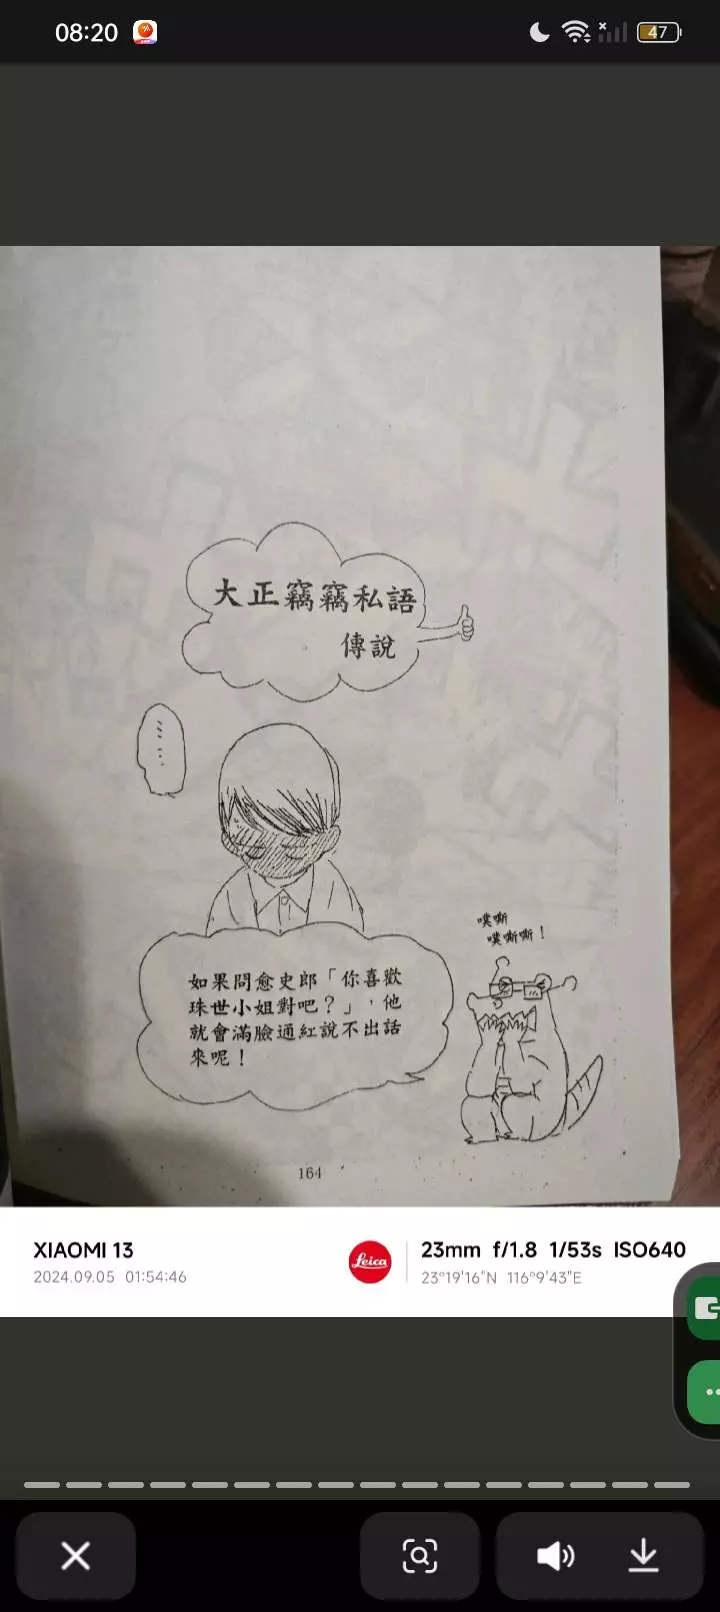 08:20
47
大正竊竊私語
傳說
……
噗嘶
噗嘶嘶！
如果問愈史郎「你喜歡
珠世小姐對吧？」，他
就會滿臉通紅說不出話
來呢！
164
XIAOMI 13
2024.09.05 01:54:46
Leica
23mm f/1.8 1/53s ISO640
23°19'16"N 116°9'43"E